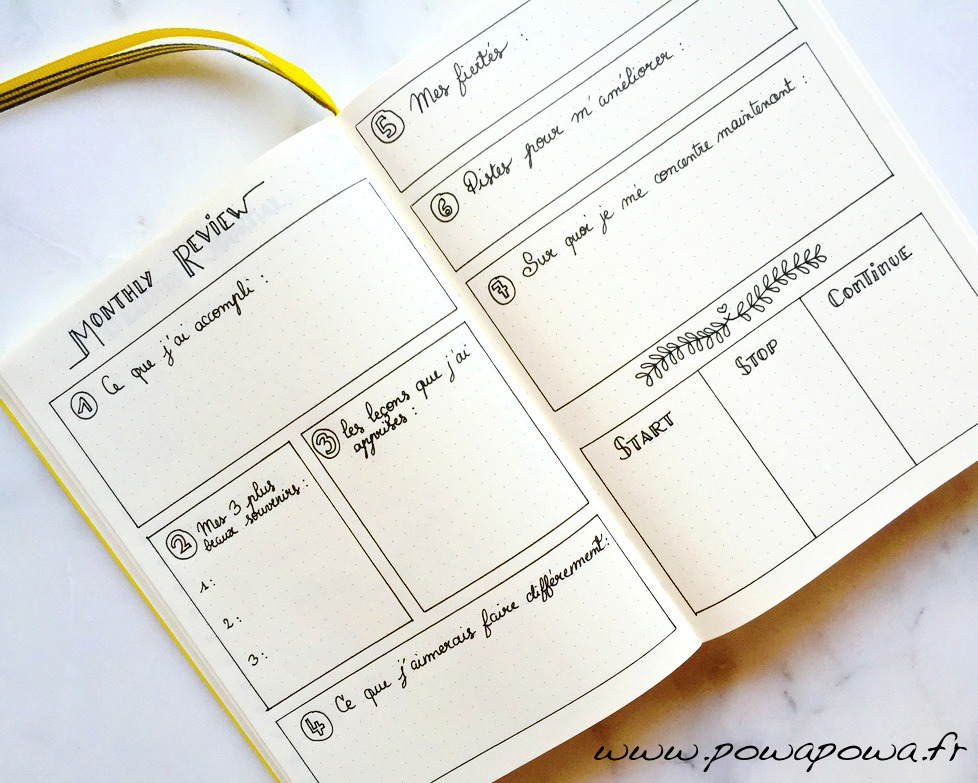 MONTHLY REVIEW
1 Ce que j'ai accompli :
2 Mes 3 plus
beaux souvenirs :
1:
2:
3:
3 les leçons que j'ai
apprises :
4 Ce que j'aimerais faire différemment:
5 Mes fiertés :
6 Pistes pour m'améliorer :
7 Sur quoi je me concentre maintenant :
START
STOP
CONTINUE
www.powapowa.fr